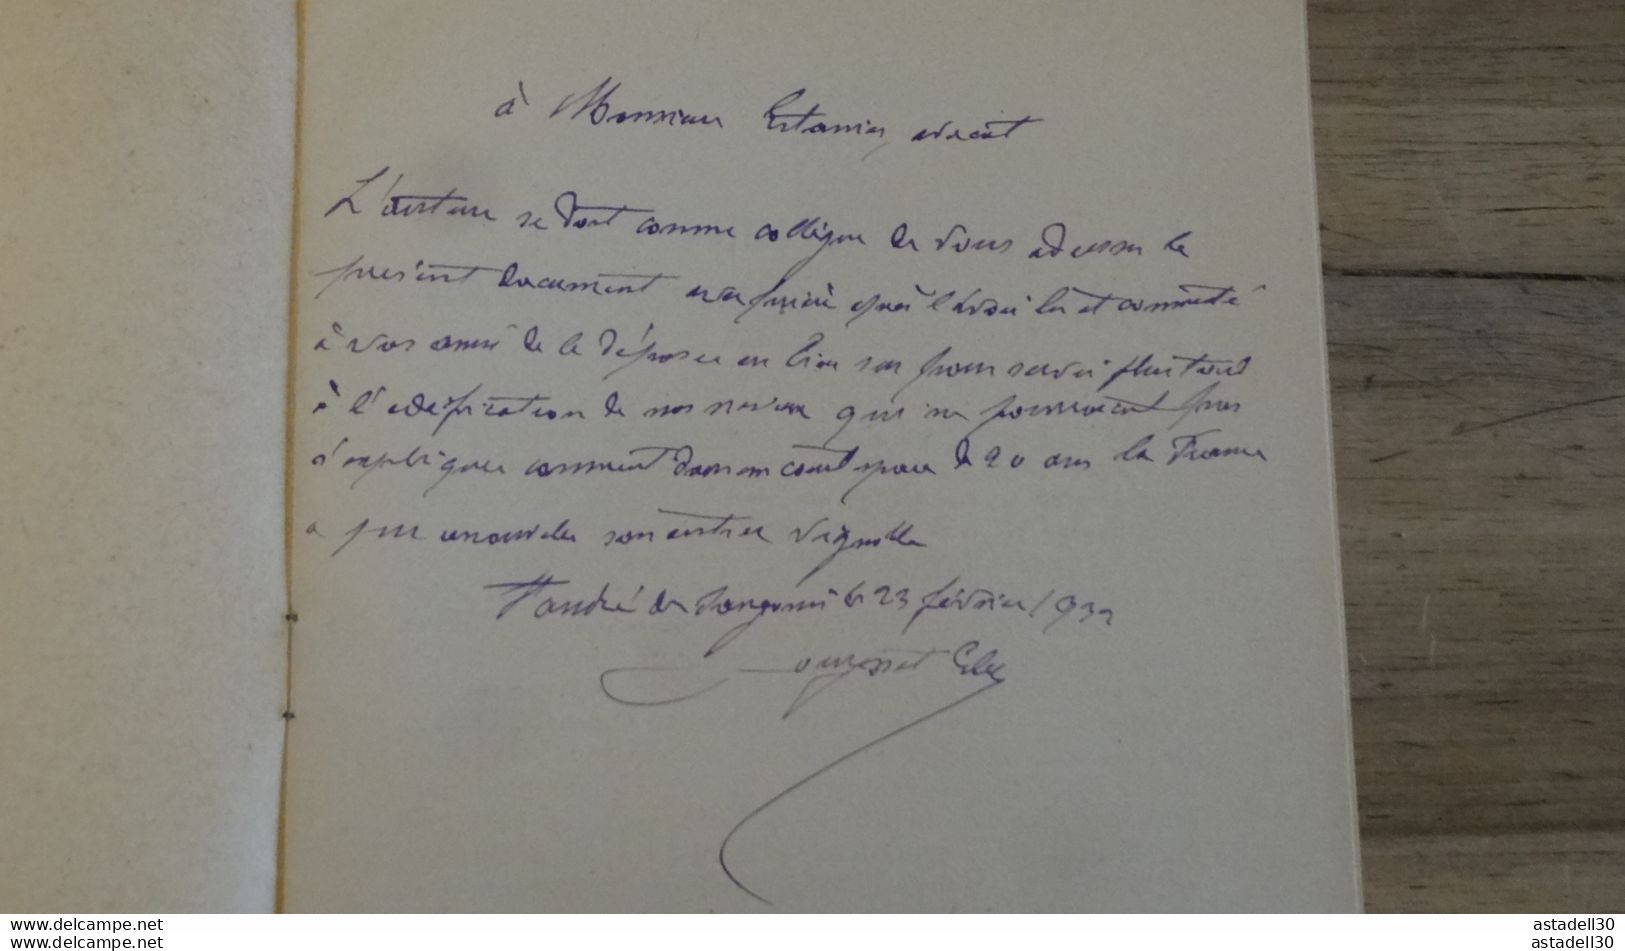 à Monsieur Estanier, avocat
L'auteur se doit comme collègue de vous adresser le
présent document avec prière après l'avoir lu et commenté
à vos amis de le déposer en lieu sûr pour servir plus tard
à l'édification de nos neveux qui ne pourraient pas
s'expliquer comment dans un court espace de 20 ans la France
a pu renouveler son entier vignoble
St André de Sangonis le 23 février 193
delcampe.net
delcampe.net
astadell30
astadell30